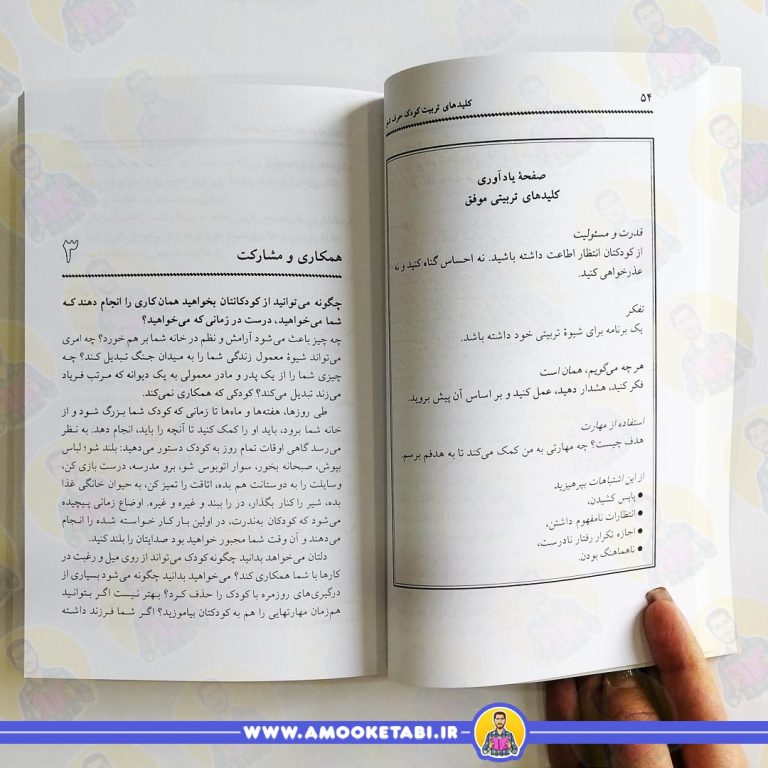 ۵۴
کلیدهای تربیت کودک حرف
صفحهٔ یادآوری
کلیدهای تربیتی موفق
قدرت و مسئولیت
از کودکتان انتظار اطاعت داشته باشید. نه احساس گناه کنید و نه
عذرخواهی کنید.
تفکر
یک برنامه برای شیوهٔ تربیتی خود داشته باشد.
هر چه می‌گویم، همان است
فکر کنید، هشدار دهید، عمل کنید و بر اساس آن پیش بروید.
استفاده از مهارت
هدف چیست؟ چه مهارتی به من کمک می‌کند تا به هدفم برسم.
از این اشتباهات بپرهیزید
● پاپس کشیدن،
● انتظارات نامفهوم داشتن،
● اجازه تکرار رفتار نادرست،
● ناهماهنگ بودن.
۳
همکاری و مشارکت
چگونه می‌توانید از کودکانتان بخواهید همان کاری را انجام دهند که
شما می‌خواهید، درست در زمانی که می‌خواهید؟
چه چیز باعث می‌شود آرامش و نظم در خانه شما بر هم خورد؟ چه امری
می‌تواند شیوهٔ معمول زندگی شما را به میدان جنگ تبدیل کند؟ چه
چیزی شما را از یک پدر و مادر معمولی به یک دیوانه که مرتب فریاد
می‌زند تبدیل می‌کند؟ کودکی که همکاری نمی‌کند.
طی روزها، هفته‌ها و ماه‌ها تا زمانی که کودک شما بزرگ شود و از
خانه شما برود، باید او را کمک کنید تا آنچه را باید، انجام دهد. به نظر
می‌رسد گاهی اوقات تمام روز به کودک دستور می‌دهید: بلند شو؛ لباس
بپوش، صبحانه بخور، سوار اتوبوس شو، برو مدرسه، درست بازی کن،
وسایلت را به دوستانت هم بده، اتاقت را تمیز کن، به حیوان خانگی غذا
بده، شیر را کنار بگذار، در را ببند و غیره و غیره. اوضاع زمانی پیچیده
می‌شود که کودکان به‌ندرت، در اولین بار کار خواسته شده را انجام
می‌دهند و آن وقت شما مجبور خواهید بود صدایتان را بلند کنید.
دلتان می‌خواهد بدانید چگونه کودک می‌تواند از روی میل و رغبت در
کارها با شما همکاری کند؟ می‌خواهید بدانید چگونه می‌شود بسیاری از
درگیری‌های روزمره با کودک را حذف کرد؟ بهتر نیست اگر بتوانید
هم‌زمان مهارتهایی را هم به کودکتان بیاموزید؟ اگر شما فرزند داشته
WWW.AMOOKETABI.IR